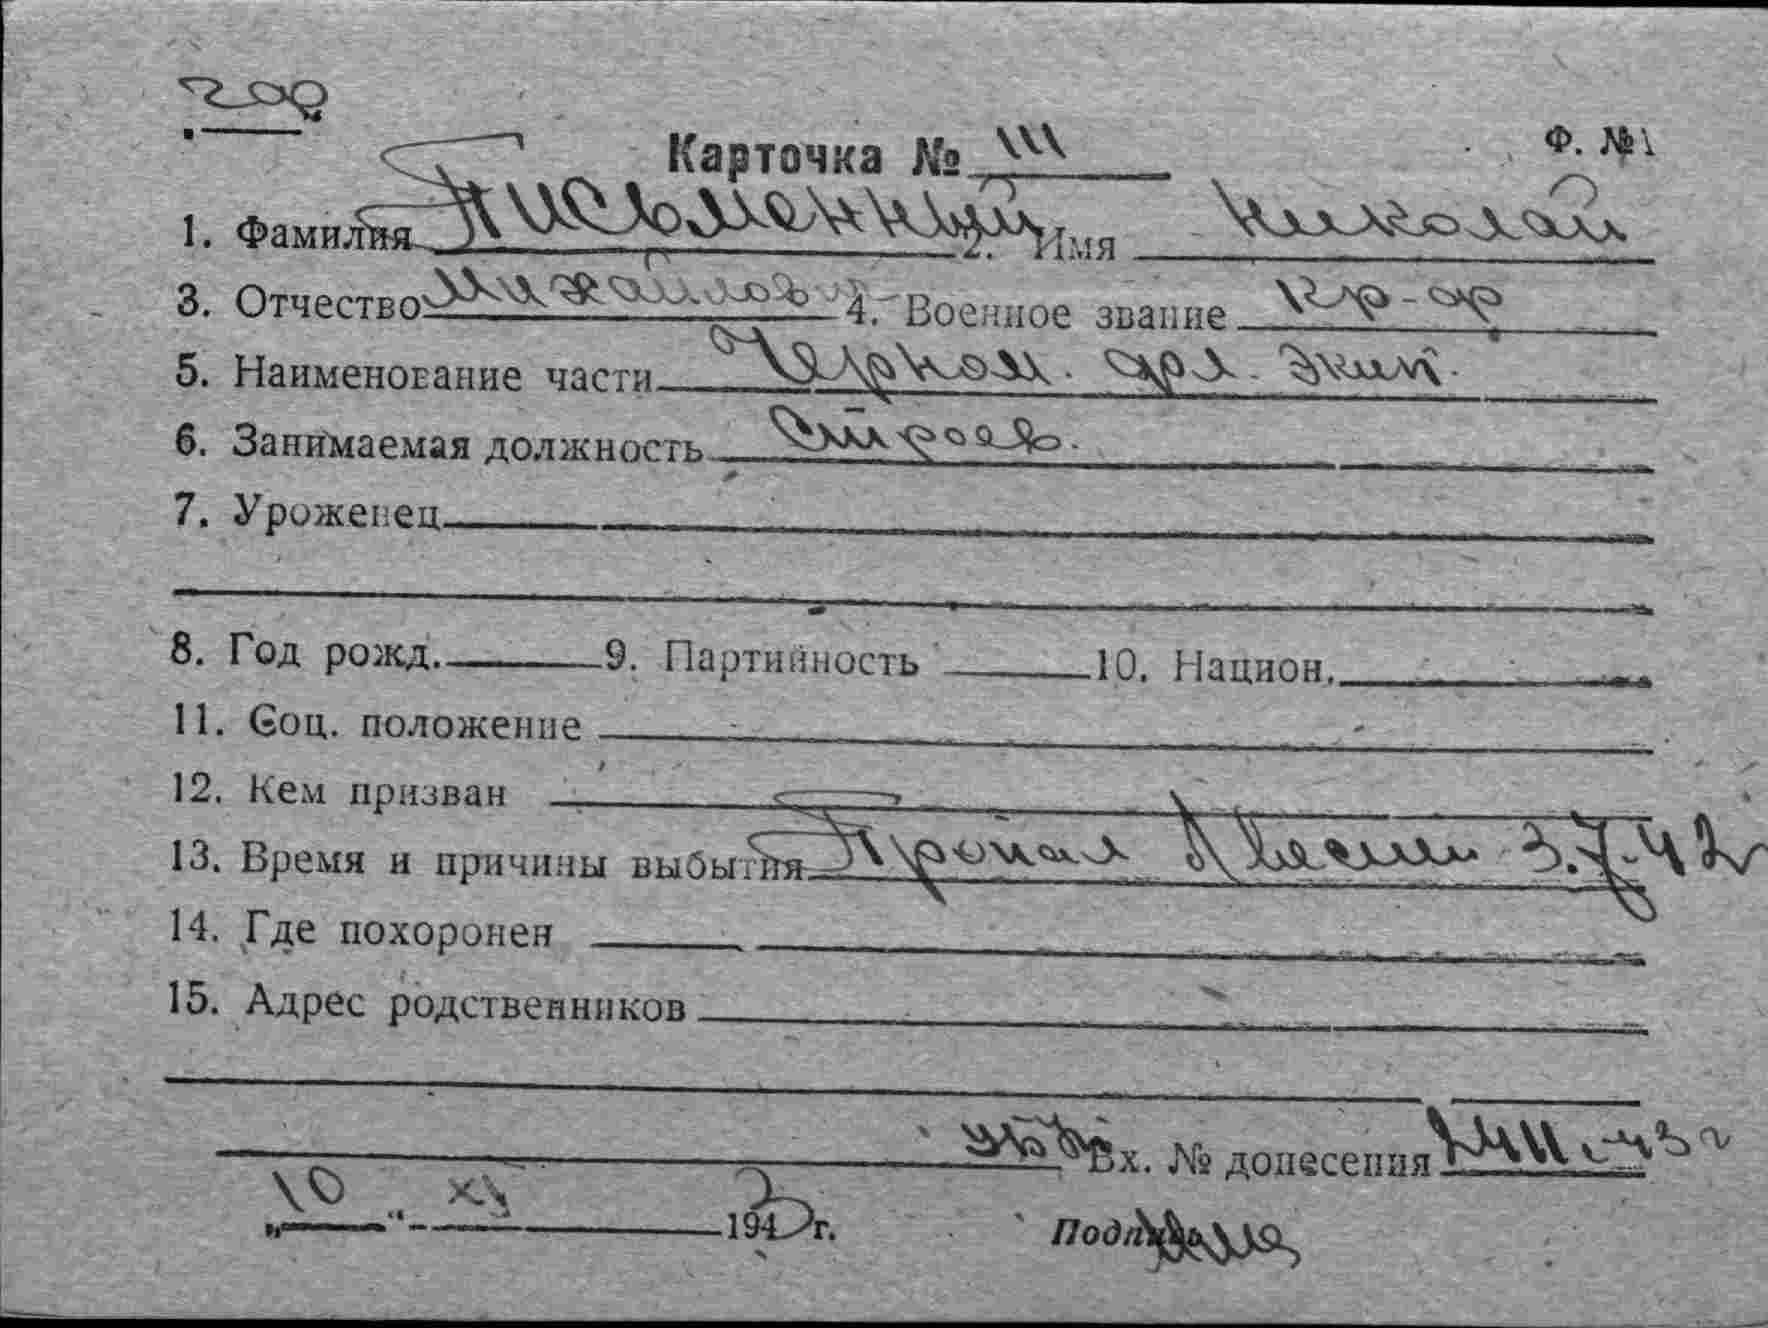 Карточка № 111
Ф. № 1
1. Фамилия Письменный 2. Имя Николай
3. Отчество Михайлович 4. Военное звание Кр-ар
5. Наименование части Черном. флот. экип.
6. Занимаемая должность Строев.
7. Уроженец
8. Год рожд. 9. Партийность 10. Национ.
11. Соц. положение
12. Кем призван
13. Время и причины выбытия Пропал без вести 3.7.42
14. Где похоронен
15. Адрес родственников
Вх. № донесения 43 г
„10“ XI 1943 г.
Подпись